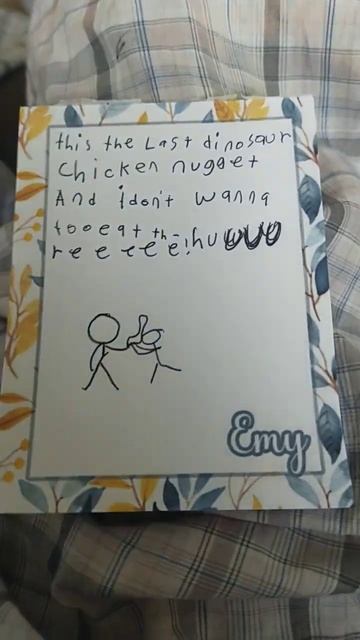 this the Last dinosaur
Chicken nugget
And i don't wanna
to oeat the
reeeeee!hu
Emy